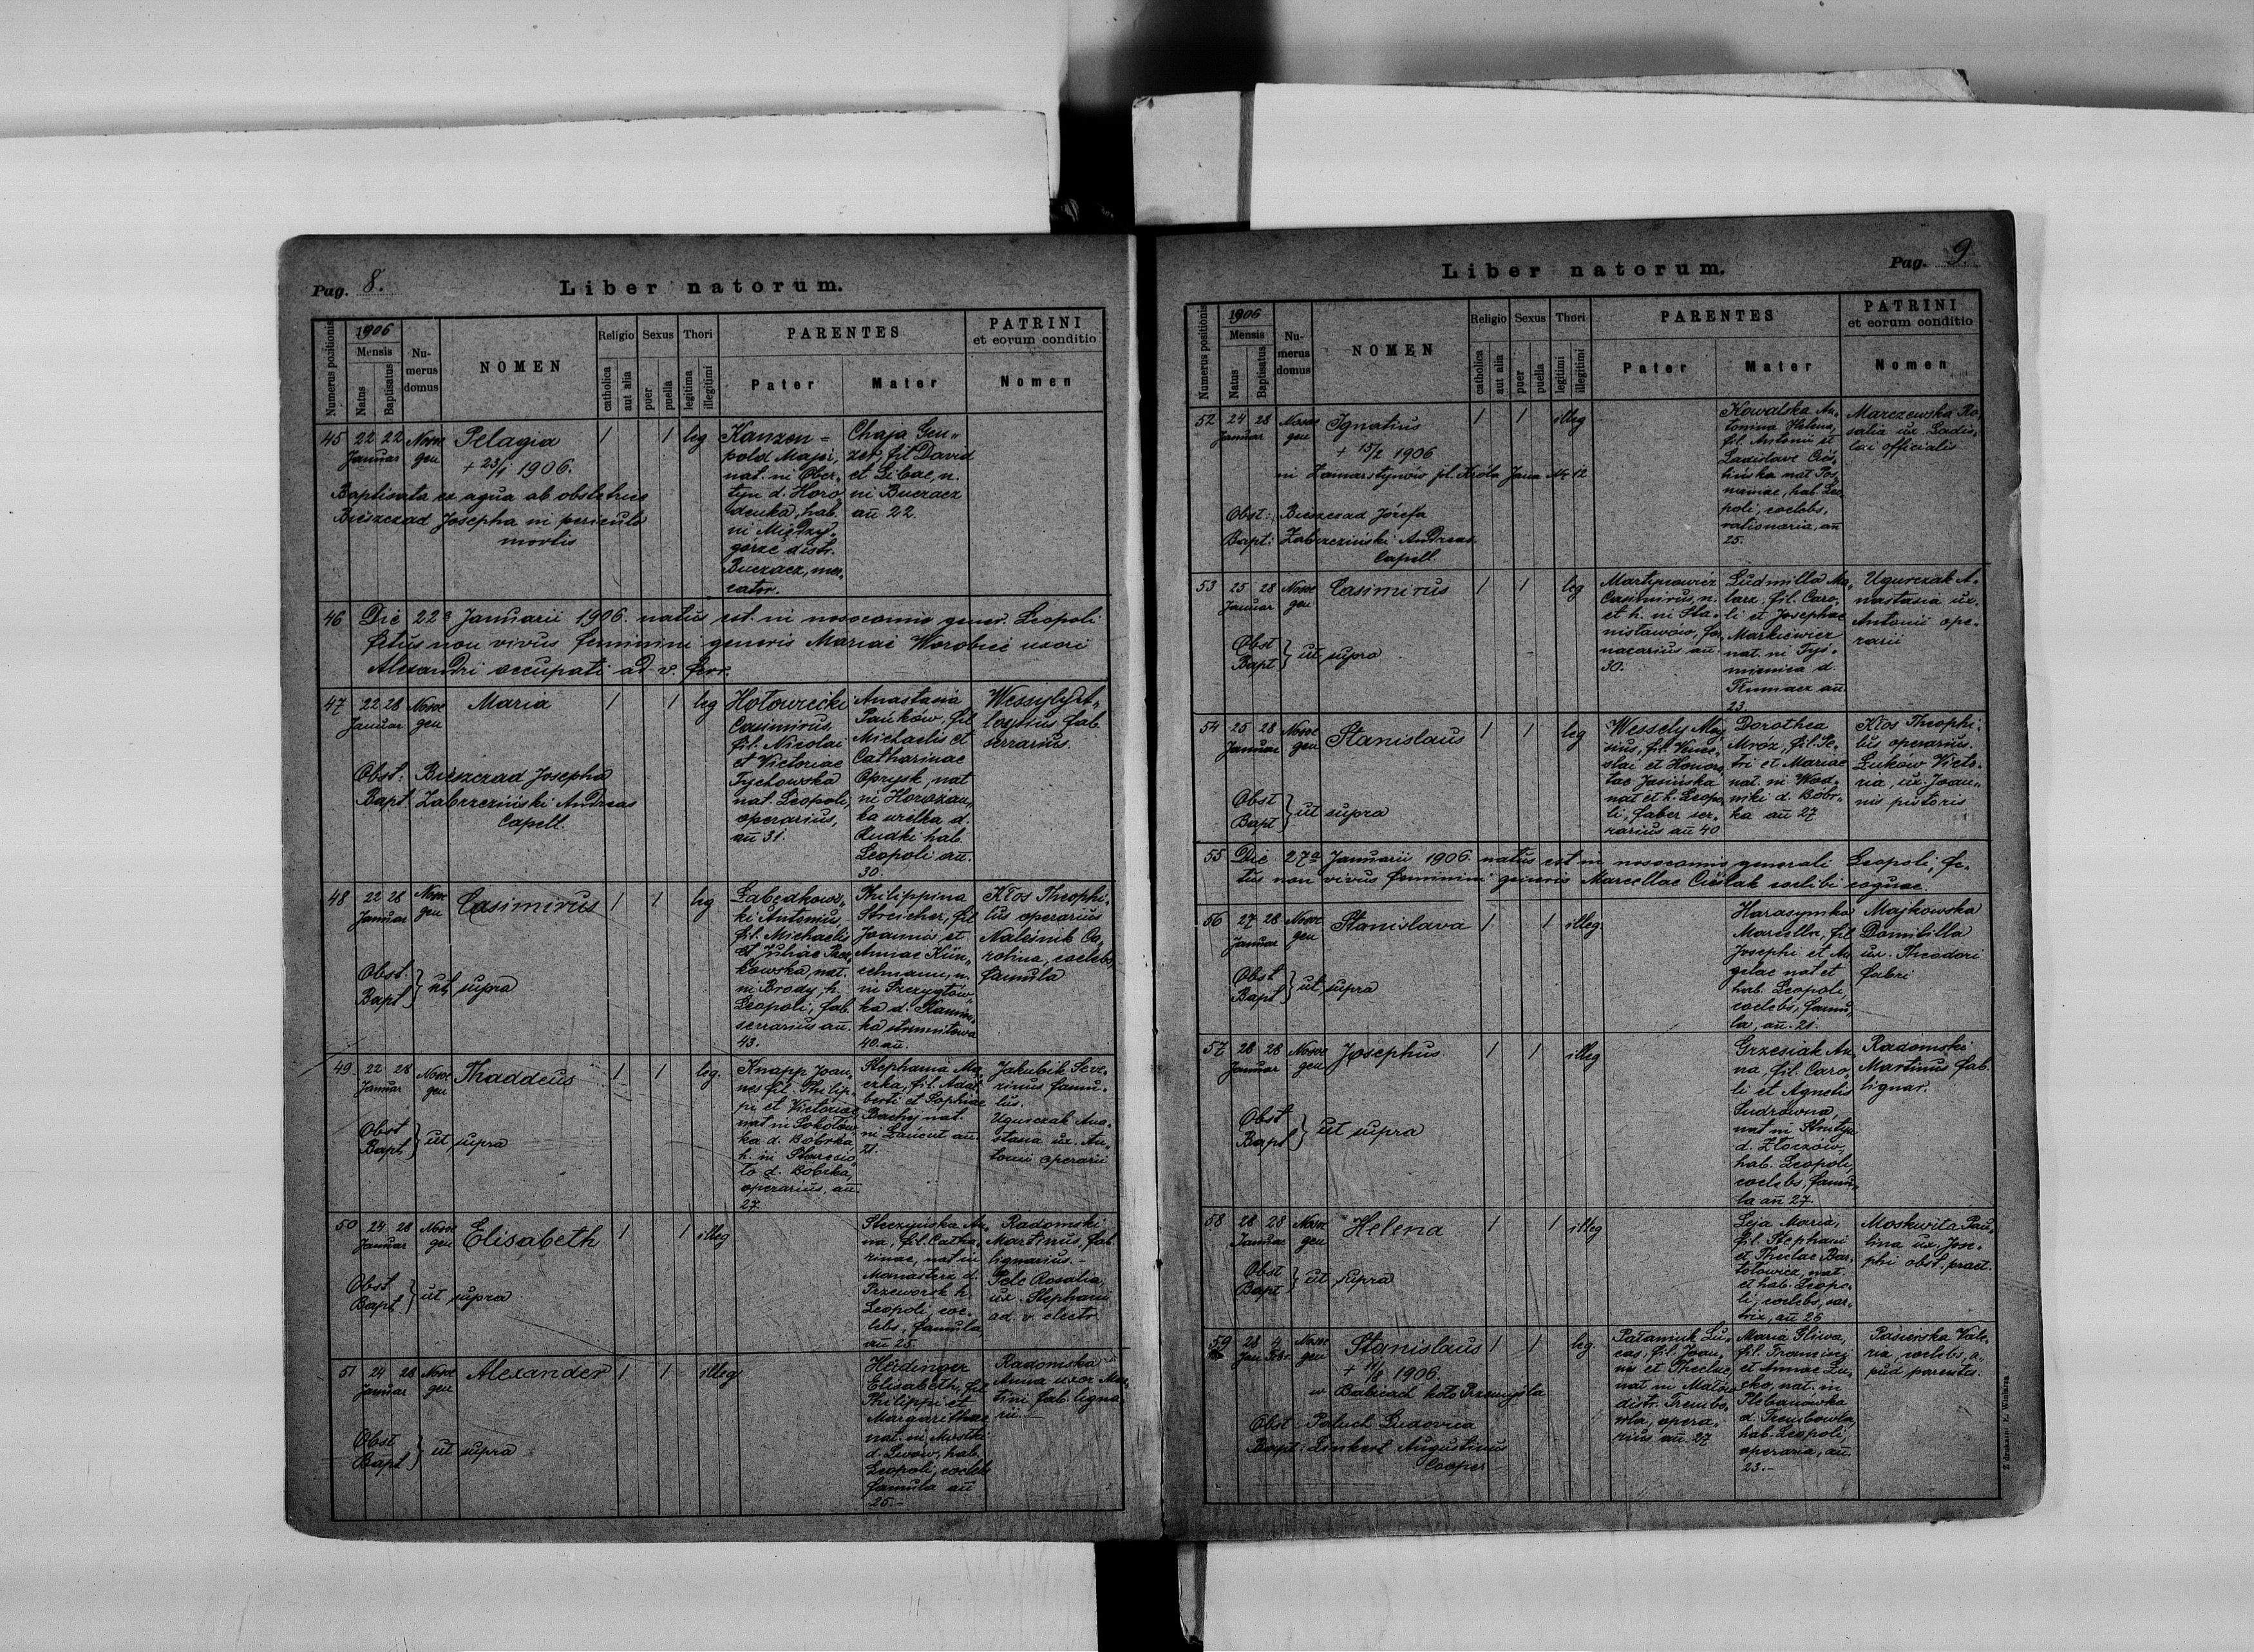 Pag. 8.
Liber natorum.
Numerus positionis
1906
Mensis
Natus
Baptisatus
Nu-
merus
domus
NOMEN
Religio
catholica
aut alia
Sexus
puer
puella
Thori
legitima
illegitimi
PARENTES
Pater
Mater
PATRINI
et eorum conditio
Nomen
45 22 22 Nosoc
Januar gen
Pelagia
+ 23/1 1906.
Baptisata ex aqua ab obstetrice
Bieszczad Josepha in periculo
mortis
1 1 leg
Kanzen=
pold Majer,
nat. in Ober-
tyn d. Horo
denka, hab.
in Między-
górze distr.
Buczacz, mer-
cator.
Chaja Gen-
zer, fil David
et Libae, n.
in Buczacz
an 22.
46 Die 22a Januarii 1906. natus est in nosocomio gener. Leopoli
fetus non vivus feminini generis Mariae Worobiec uxori
Alexandri occupati ad v. ferr.
47 22 28 Nosoc
Januar gen
Maria
1 1 leg
Obst: Bieszczad Josepha
Bapt Zabrzeziński Andreas
Capell.
Hołowiecki
Casimirus,
fil. Nicolai
et Victoriae
Tychowska
nat. Leopoli,
operarius,
an 31.
Anastasia
Pańków, fil
Michaelis et
Catharinae
Oprysk, nat
in Horożan-
ka wielka d.
Rudki hab.
Leopoli an.
30.
Wessyly
fab.
serrarius.
48 22 28 Nosoc
Januar gen
Casimirus
1 1 leg
Obst.
Bapt } ut supra
Łabędkows-
ki Antonius,
fil. Michaelis
et Juliae
nat.
in Brody, h.
Leopoli, fab.
serrarius an.
43.
Philippina
Streicher, fil
Joannis et
Annae Kün-
elmann, n.
in Szczygłów-
ka d. Kamion-
ka strumiłowa
40. an.
Kłos Theophi-
lus operarius
Naleśnik Ca-
rolina, coelebs,
famula
49 22 28 Nosoc
Januar gen
Thaddeus
1 1 leg.
Obst
Bapt } ut supra
Knapp Joan-
nes fil. Philip-
pi et Victoriae,
nat in Sokołów-
ka d. Bobrka
h. in Staresio-
ło d. Bobrka,
operarius, an.
27.
Stephania Ma-
czka, fil. Adal-
berti et Sophiae
nat.
in Łańcut an.
21.
Jakubik Seve-
rinus famu-
lus.
Ugurczak Ana-
stasia ux. An-
tonii operarii
50 24 28 Nosoc
Januar gen
Elisabeth
1 1 illeg
Obst
Bapt } ut supra
Steczyńska An-
na, fil. Catha-
rinae, nat in
Monasterz d.
Przeworsk h.
Leopoli, coe-
lebs, famula,
an 25.
Radomski
Martinus, fab
lignarius.-
Pelc Rosalia,
ux. Stephani
ad. v. electr.
51 24 28 Nosoc
Januar gen
Alexander
1 1 illeg
Obst
Bapt } ut supra
Heidinger
Elisabeth, fil
Philippi et
Margarithae
nat. in Mostki
d. Lwow, hab.
Leopoli, coelebs
famula an
26.-
Radomska
Anna uxor Mar-
tini fab. ligna-
rii.-
Pag. 9.
Liber natorum.
Numerus positionis
1906
Mensis
Natus
Baptisatus
Nu-
merus
domus
NOMEN
Religio
catholica
aut alia
Sexus
puer
puella
Thori
legitimi
illegitimi
PARENTES
Pater
Mater
PATRINI
et eorum conditio
Nomen
52 24 28 Nosoc
Januar gen
Ignatius
+ 15/2 1906
in Zamarstynów pl. Króla Jana Nr 12
1 1 illeg
Obst: Bieszczad Józefa
Bapt: Zabrzeziński Andreas.
Capell
Kowalska An-
tonina Helena,
fil. Antonii et
Ladislave Cieś-
lińska nat Pos-
naniae, hab. Leo
poli, coelebs,
rationaria, an
25.
Marczewska Ro-
salia ux. Ladis-
lai officialis
53 25 28 Nosoc
Januar gen
Casimirus
1 1 leg
Obst
Bapt } ut supra
Martynowicz
Casimirus, n.
et h. in Sta-
nisławów, for-
nacarius an.
30.
Ludmilla Ma-
larz, fil. Caro-
li et Josephae
Markiewicz
nat. in Tyś-
mienica d.
Tłumacz an.
23.
Ugurczak A-
nastasia ux.
Antonii ope-
rarii
54 25 28 Nosoc
Januar gen
Stanislaus
1 1 leg
Obst
Bapt } ut supra
Wessely Aloj
sius, fil. Vence-
slai et Honora-
tae Jasińska
nat et h. Leopo-
li, faber ser-
rarius an 40
Dorothea
Mróz, fil. Pe-
tri et Mariae
nat. in Wod-
niki d. Bobr-
ka an 27
Kłos Theophi-
lus operarius.
Łukow Victo-
ria, ux. Joan-
nis pistoris
55 Die 27a Januarii 1906. natus est in nosocomio generali Leopoli, fe-
tus non vivus feminini generis Marcellae Cieślak coelibi coquae.
56 27 28 Nosoc
Januar gen
Stanislava
1 1 illeg.
Obst
Bapt } ut supra
Harasymka
Marcella, fil
Josephi et An
gelae nat et
hab. Leopoli,
coelebs, famu-
la, an. 21.
Majkowska
Domitilla
ux. Theodori
fabri
57 28 28 Nosoc
Januar gen
Josephus
1 1 illeg
Obst
Bapt } ut supra
Grzesiak An-
na, fil. Caro-
li et Agnetis
Sudrówna,
nat in Strutyn
d. Złoczów,
hab. Leopoli,
coelebs, famu-
la an 27.
Radomski
Martinus fab.
lignar.
58 28 28 Nosoc
Januar gen
Helena
1 1 illeg
Obst
Bapt } ut supra
Leja Maria,
fil. Stephani
et Theclae Bar-
tołowicz, nat.
et hab. Leopo-
li, coelebs, sar-
trix, an 26
Moskwita Pau-
lina ux. Jose-
phi obst. pract.
59 28 4 Nosoc
Jan Febr. gen
Stanislaus
+ 11/8 1906.
w Babicach koło Przemyśla
1 1 leg.
Obst: Paluch Ludovica
Bapt: Linkert Augustinus
Cooper
Pałaniuk Lu-
cas, fil. Joan-
nis et Theclae,
nat in Małów
distr. Trembo-
wla, opera-
rius an. 27
Maria Śliwa,
fil. Francisci
et Annae Lu-
cko, nat. in
Plebanówka
d. Trembowla,
hab. Leopoli,
operaria, an.
23.-
Pasierska Vale-
ria, coelebs, a-
pud parentes.
Z drukarni E. Winiarza